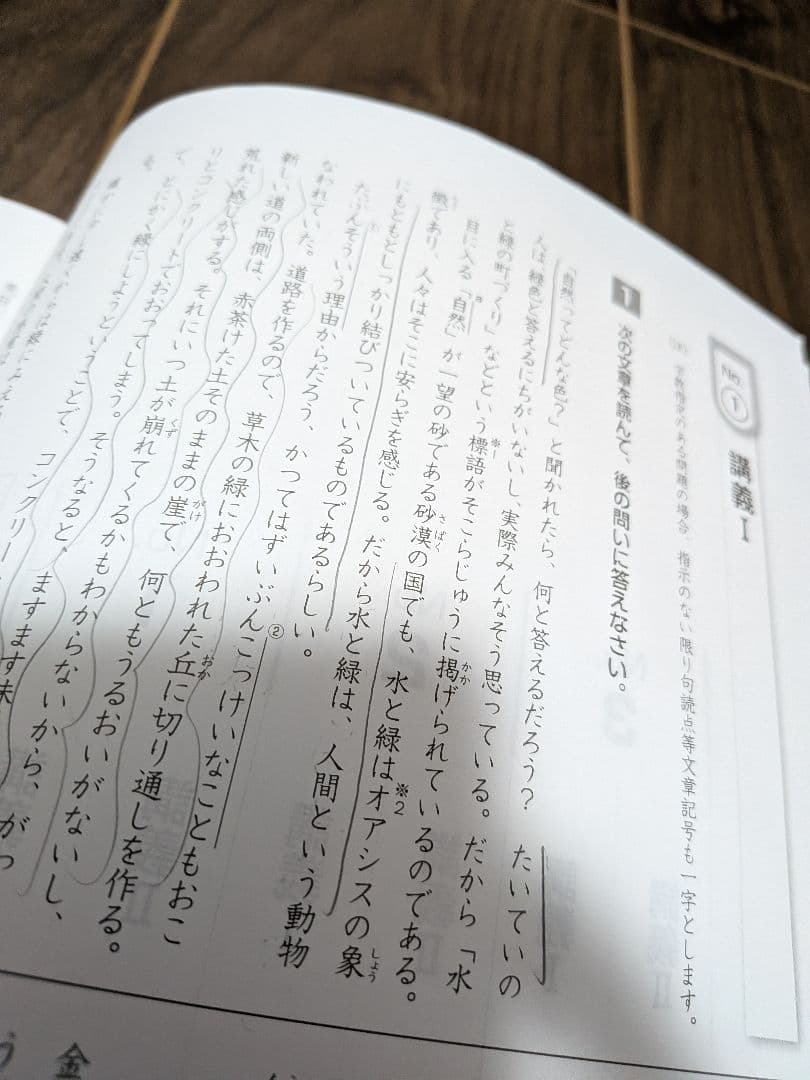 No.① 講義Ⅰ
(注) 字数指定のある問題の場合、指示のない限り句読点等文章記号も一字とします。
1 次の文章を読んで、後の問いに答えなさい。
「自然ってどんな色？」と聞かれたら、何と答えるだろう？ たいていの
人は「緑色」と答えるにちがいないし、実際みんなそう思っている。だから「水
と緑の町づくり」などという標語※1がそこらじゅうに掲かかげられているのである。
目に入る「自然」が一望の砂である砂漠さばくの国でも、水と緑はオアシス※2の象しょう
徴であり、人々はそこに安らぎを感じる。だから水と緑は、人間という動物
にもともとしっかり結びついているものであるらしい。
①たぶんそういう理由からだろう、かつてはずいぶん②こっけいなこともおこ
なわれていた。道路を作るので、草木の緑におおわれた丘おかに切り通しを作る。
新しい道の両側は、赤茶けた土そのままの崖がけで、何ともうるおいがないし、
荒れた感じがする。それにいつ土が崩くずれてくるかもわからないから、がっ
りとコンクリートでおおってしまう。そうなると、ますます味
で、とにかく緑にしようということで、コンクリー
う
金